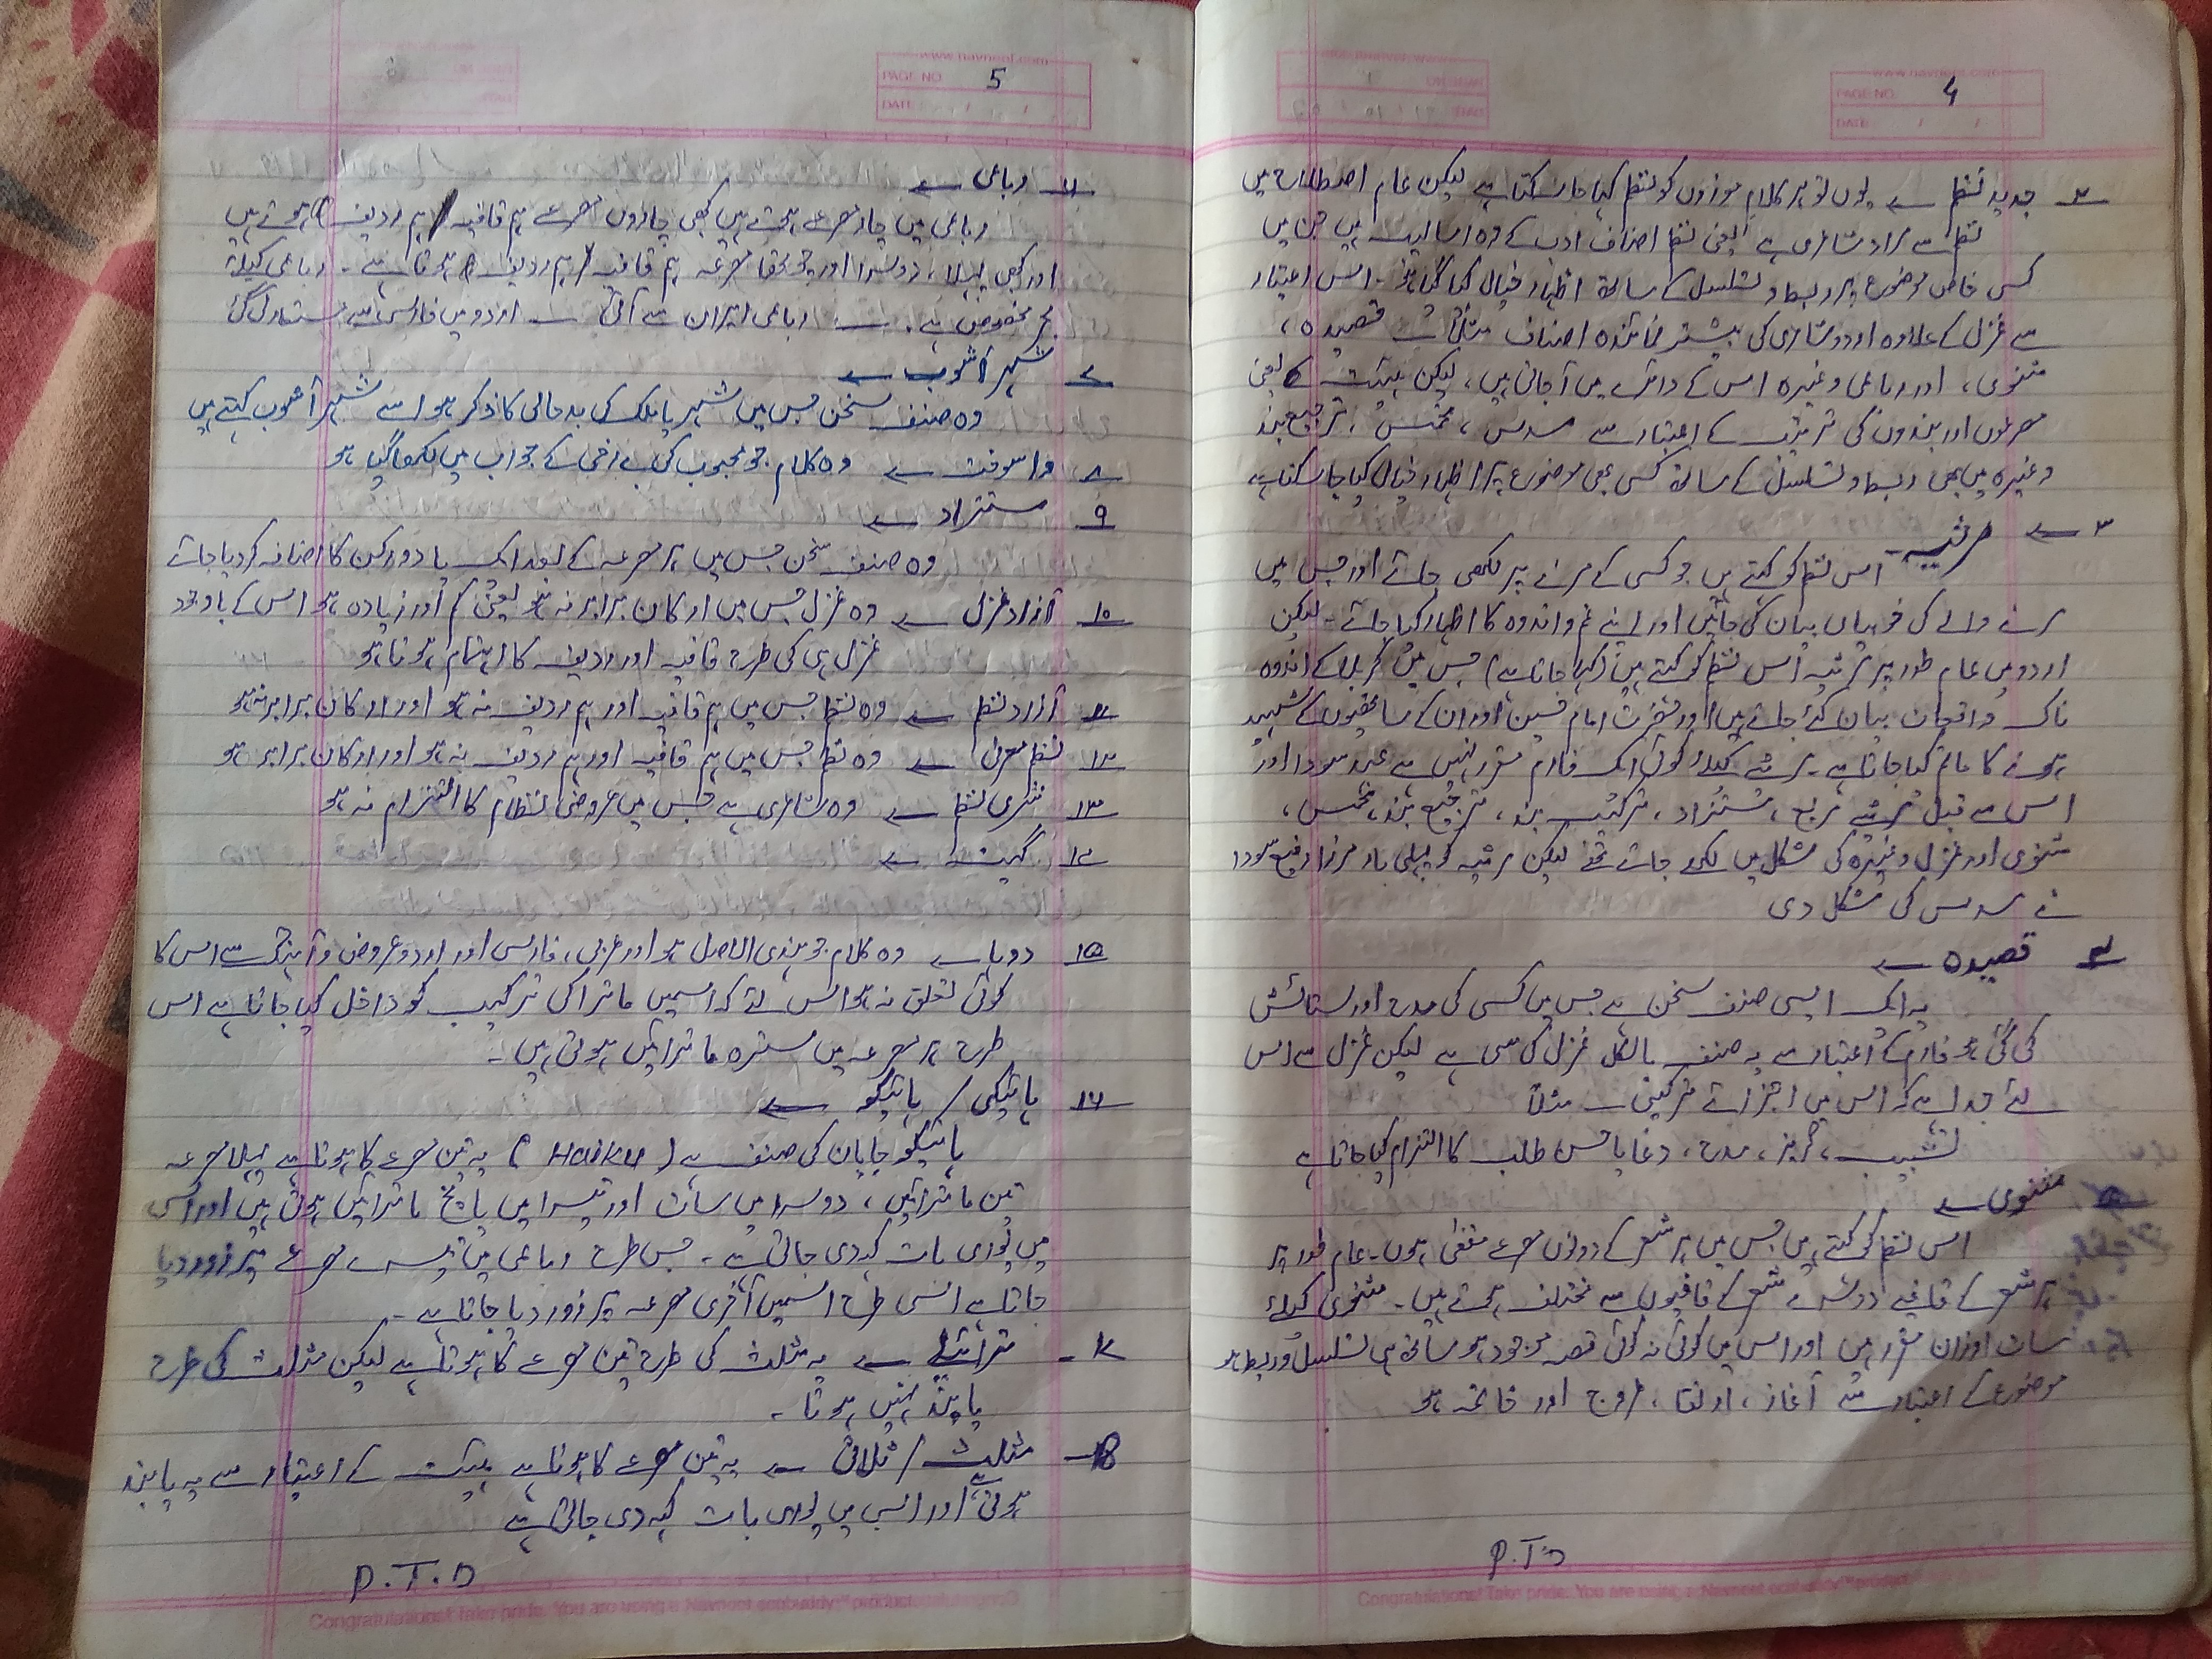 www.navneet.com
PAGE NO. 4
DATE / /
۲ــ جدید نظم ← یوں تو ہر کلام موزوں کو نظم کہا جا سکتا ہے لیکن عام اصطلاح میں
نظم سے مراد شاعری ہے یعنی نظم اصناف ادب کے وہ اسالیب ہیں جن میں
کسی خاص موضوع پر ربط و تسلسل کے ساتھ اظہار خیال کیا گیا ہو۔ اس اعتبار
سے غزل کے علاوہ اردو شاعری کی بیشتر نمائندہ اصناف مثلاً قصیدہ،
مثنوی، اور رباعی وغیرہ اس کے دائرے میں آجاتی ہیں، لیکن ہیئت یعنی
مصرعوں اور بندوں کی ترتیب کے اعتبار سے مسدس، مخمس، ترجیع بند
وغیرہ میں بھی ربط و تسلسل کے ساتھ کسی بھی موضوع پر اظہار خیال کیا جا سکتا ہے
۳ ← مرثیہ - اس نظم کو کہتے ہیں جو کسی کے مرنے پر لکھی جائے اور جس میں
مرنے والے کی خوبیاں بیان کی جائیں اور اپنے غم و اندوہ کا اظہار کیا جائے۔ لیکن
اردو میں عام طور پر مرثیہ اُس نظم کو کہتے ہیں (کہا جاتا ہے) جس میں کربلا کے اندوہ
ناک واقعات بیان کئے جاتے ہیں اور حضرت امام حسین اور ان کے ساتھیوں کے شہید
ہونے کا ماتم کیا جاتا ہے۔ مرثیے کیلئے کوئی ایک فارم مقرر نہیں ہے عہد سودا اور
اس سے قبل مرثیے مربع، مستزاد، ترکیب بند، ترجیع بند، مخمس،
مثنوی اور غزل وغیرہ کی شکل میں لکھے جاتے تھے لیکن مرثیہ کو پہلی بار مرزا رفیع سودا
نے مسدس کی شکل دی
۴ قصیدہ ←
یہ ایک ایسی صنف سخن ہے جس میں کسی کی مدح اور ستائش
کی گئی ہو فارم کے اعتبار سے یہ صنف بالکل غزل کی سی ہے لیکن غزل سے اس
لئے جدا ہے کہ اس میں اجزائے ترکیبی ــ مثلاً
تشبیب، گریز، مدح، دعا یا حسن طلب کا التزام کیا جاتا ہے
مثنوی ←
اس نظم کو کہتے ہیں جس میں ہر شعر کے دونوں مصرعے مقفٰی ہوں۔ عام طور پر
ہر شعر کے قافیے دوسرے شعر کے قافیوں سے مختلف ہوتے ہیں۔ مثنوی کیلئے
سات اوزان مقرر ہیں اور اس میں کوئی نہ کوئی قصہ موجود ہو ساتھ ہی تسلسل و ربط ہو
موضوع کے اعتبار سے آغاز، ارتقا، عروج اور خاتمہ ہو
P.T.O
Congratulations! Take pride. You are using a Navneet ecobuddy product
www.navneet.com
PAGE NO. 5
DATE / /
رباعی ←
رباعی میں چار مصرعے ہوتے ہیں کبھی چاروں مصرعے ہم قافیہ / ہم ردیف ہوتے ہیں
اور کبھی پہلا، دوسرا اور چوتھا مصرعہ ہم قافیہ / ہم ردیف ہوتا ہے۔ رباعی کیلئے
بحر مخصوص ہے۔ رباعی ایران سے آئی ــ اردو میں فارسی سے مستعار لی گئی
۷ شہر آشوب ←
وہ صنف سخن جس میں شہر یا ملک کی بد حالی کا ذکر ہو اسے شہر آشوب کہتے ہیں
۸ واسوخت ← وہ کلام جو محبوب کی بے رخی کے جواب میں لکھا گیا ہو
۹ مستزاد ←
وہ صنف سخن جس میں ہر مصرعہ کے بعد ایک یا دو رکن کا اضافہ کر دیا جائے
۱۰ آزاد غزل ← وہ غزل جس میں ارکان برابر نہ ہو یعنی کم اور زیادہ ہو اس کے باوجود
غزل ہی کی طرح قافیہ اور ردیف کا اہتمام ہوتا ہو
۱۱ آزاد نظم ← وہ نظم جس میں ہم قافیہ اور ہم ردیف نہ ہو اور ارکان برابر نہ ہو
۱۲ نظم معریٰ ← وہ نظم جس میں ہم قافیہ اور ہم ردیف نہ ہو اور ارکان برابر ہو
۱۳ نثری نظم ← وہ شاعری ہے جس میں عروضی نظام کا التزام نہ ہو
۱۴ گیت ←
۱۵ دوہا ← وہ کلام جو ہندی الاصل ہو اور عربی، فارسی اور اردو عروض و آہنگ سے اس کا
کوئی تعلق نہ ہو اس لئے کہ اسمیں ماترا کی ترکیب کو داخل کیا جاتا ہے اس
طرح ہر مصرعہ میں سترہ ماترائیں ہوتی ہیں۔
۱۶ ہائیکی / ہائیکو ←
ہائیکو جاپان کی صنف ہے (Haiku) یہ تین مصرعے کا ہوتا ہے پہلا مصرعہ
تین ماترائیں، دوسرا میں سات اور تیسرا میں پانچ ماترائیں ہوتی ہیں اور اسی
میں پوری بات کہہ دی جاتی ہے۔ جس طرح رباعی میں تیسرے مصرعے پر زور دیا
جاتا ہے اسی طرح اسمیں آخری مصرعہ پر زور دیا جاتا ہے۔
۱۷- ترائیلے ← یہ مثلث کی طرح تین مصرعے کا ہوتا ہے لیکن مثلث کی طرح
پابند نہیں ہوتا۔
18- مثلث / ثلاثی ← یہ تین مصرعے کا ہوتا ہے ہیئت کے اعتبار سے یہ پابند
ہوتی ہے اور اس میں پوری بات کہہ دی جاتی ہے
P.T.O
Congratulations! Take pride. You are using a Navneet ecobuddy product